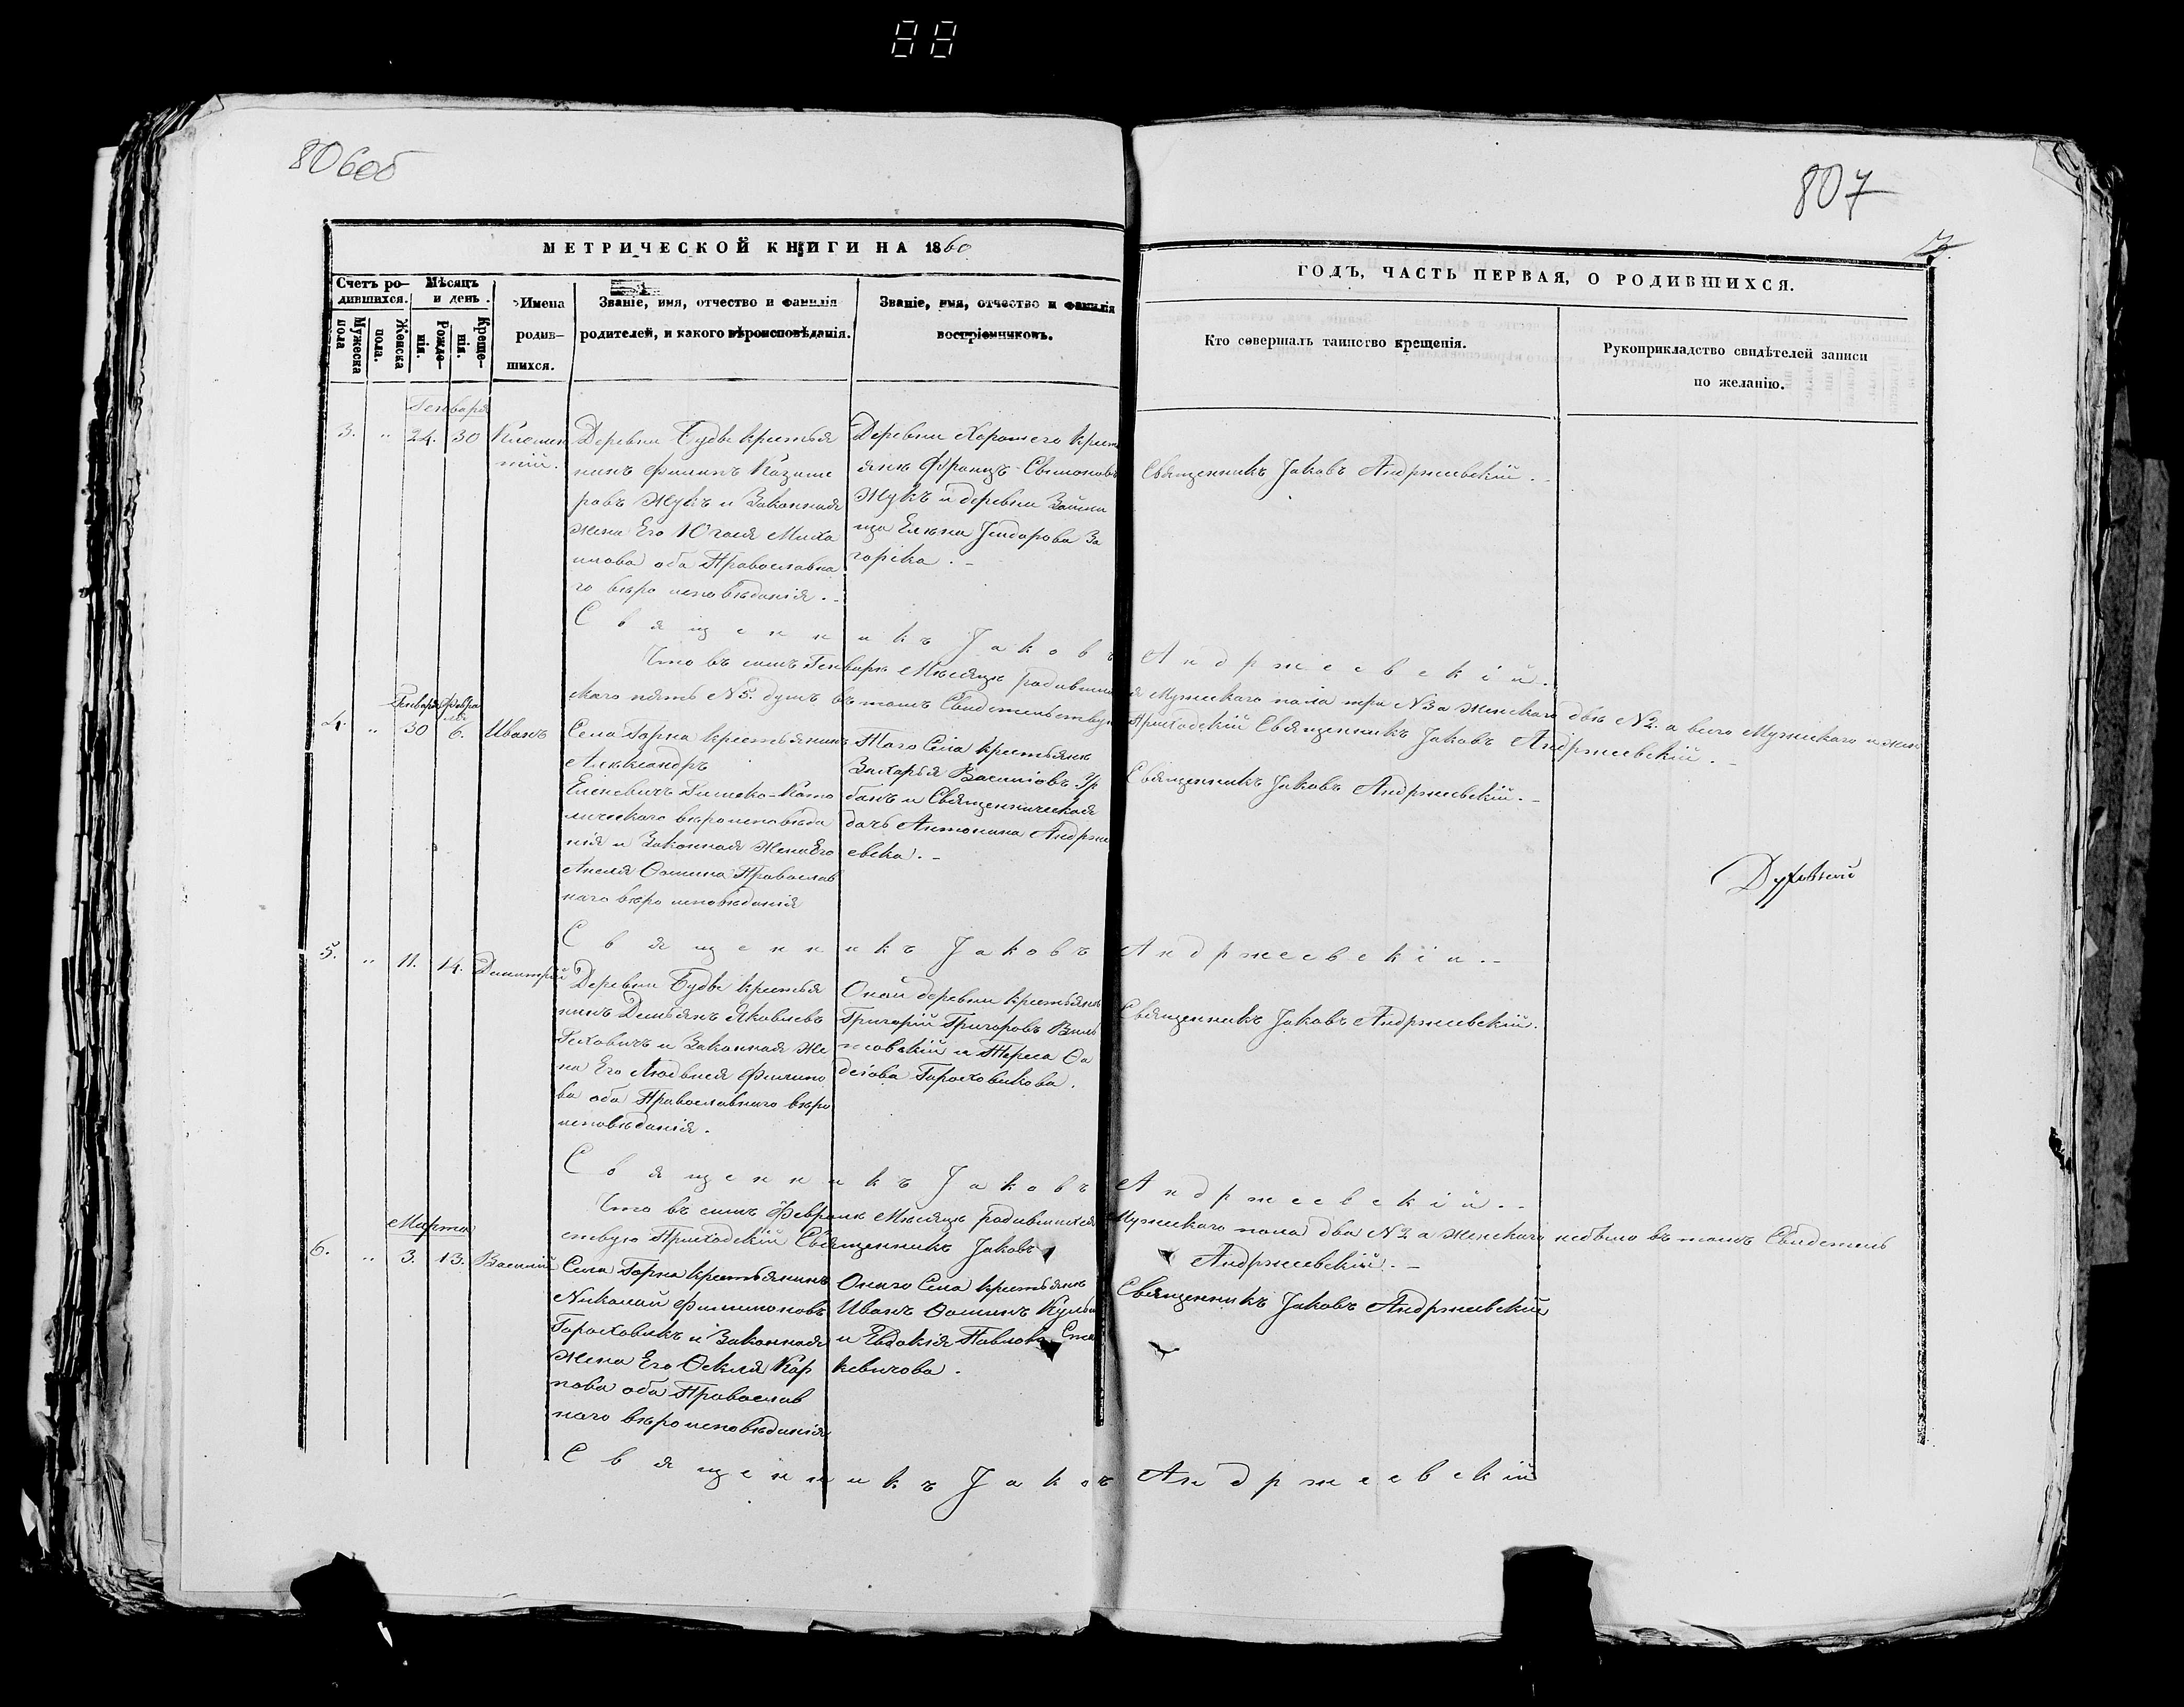 88
806об
807
МЕТРИЧЕСКОЙ КНИГИ НА 1860
ГОДЪ, ЧАСТЬ ПЕРВАЯ, О РОДИВШИХСЯ.
Счетъ ро-
дившихся.
Мужеска
пола
Женска
пола.
Мѣсяцъ
и день.
Рожде-
нія.
Креще-
нія.
Имена
родив-
шихся.
Званіе, имя, отчество и фамилія
родителей, и какого вѣроисповѣданія.
Званіе, имя, отчество и фамилія
воспріемниковъ.
Кто совершалъ таинство крещенія.
Рукоприкладство свидѣтелей записи
по желанію.
Генваря
3. „ 24. 30
Климен
тій.
Деревни Будве крестья
нинъ Филипъ Казиме
ровъ Жукъ и Законная
жена Его Юлія Миха
илова оба Православна
го вѣро исповѣданія.
Деревни Хорошего крест
янъ Францъ Симоновъ
Жукъ и деревни
Елена За
горска.
Священникъ Јаковъ Андржеевскій.
Священникъ Јаковъ Андржеевскій.
Что въ семъ Генваре Месяце родившихся Мужескаго пола три №3 а Женскаго две №2. а всего Мужескаго и жен
скаго пять №5. душъ въ томъ Свидетельствую Приходскій Священникъ Јаковъ Андржеевскій.
Генваря Февра
ля
4. „ 30 6. Иванъ
Села Горка крестьянинъ
Александръ
Римско-Като
лическаго вероисповеда
нія и Законная Жена Его
Анеля Фомина Православ
наго вѣро исповѣданія
Того Села крестьянъ
Захарья Васильевъ Ур
банъ и Священническая
дочь Антонина Андрже
евска.
Священникъ Јаковъ Андржеевскій.
Священникъ Јаковъ Андржеевскій.
5. „ 11. 14. Димитрій
Деревни Будве крестья
нинъ Демьянъ Яковлевъ
и Законная Же
на Его Людвися Филипо
ва оба Православнаго вѣро
исповѣданія.
Оной деревни крестьянъ
Григорій Григоровъ
и Тереса Фа
деова Гороховикова.
Священникъ Јаковъ Андржеевскій.
Священникъ Јаковъ Андржеевскій.
Что въ семъ Феврале Месяце родившихся Мужескаго пола два №2 а Женскаго небыло въ томъ Свидетель
ствую Приходскій Священникъ Јаковъ Андржеевскій.
Марта
6. „ 3. 13. Василій
Села Горка крестьянинъ
Николай Филимоновъ
Гороховикъ и Законная
Жена Его Фекля Кар
пова оба Православ
наго вѣро исповѣданія
Онаго Села крестьянъ
Иванъ Фоминъ
и Евдокія Павлова
кевичова.
Священникъ Јаковъ Андржеевскій
Священникъ Јаковъ Андржеевскій